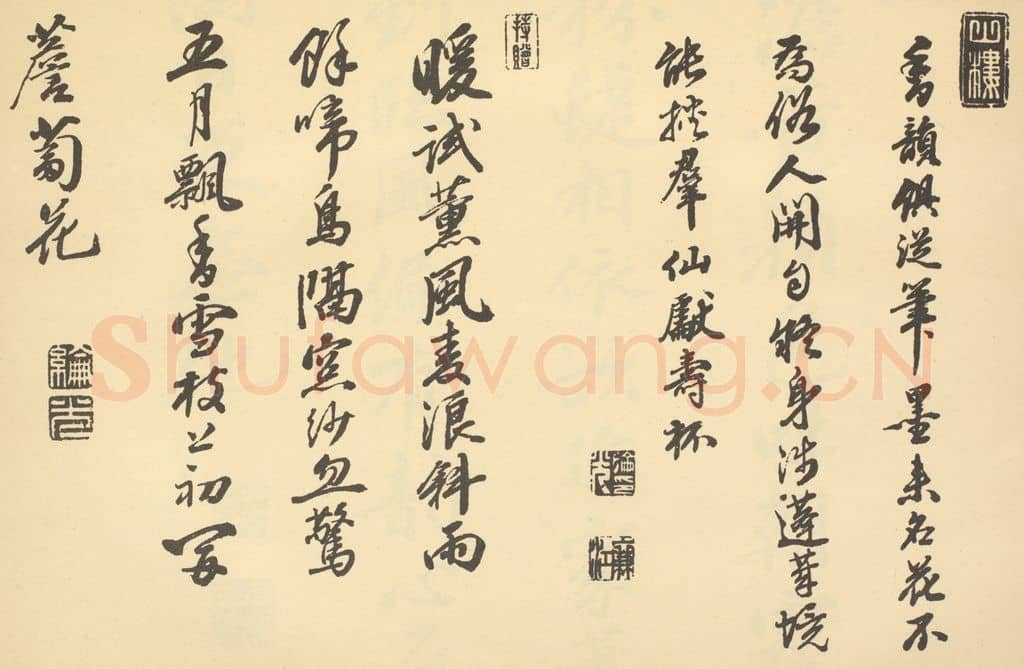 山樓
香韻俱從筆墨來名花不
為俗人開自疑身涉蓬萊境
能捧羣仙獻壽杯
持贈
暖試薰風麥浪斜雨
餘啼鳥隔窗紗忽驚
五月飄香雪枝上初開
薝蔔花
Shutawang.CN